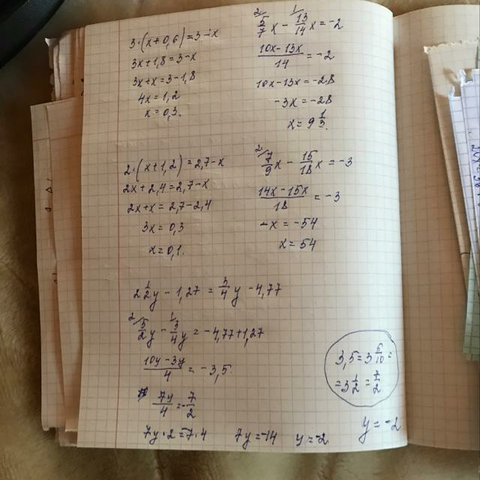 3·(x+0,6)=3-x
3x+1,8=3-x
3x+x=3-1,8
4x=1,2
x=0,3.
5/7 x - 13/14 x = -2
(10x-13x)/14 = -2
10x-13x=-28
-3x=-28
x=9 1/3.
2·(x+1,2)=2,7-x
2x+2,4=2,7-x
2x+x=2,7-2,4
3x=0,3
x=0,1.
7/9 x - 15/18 x = -3
(14x-15x)/18 = -3
-x=-54
x=54
2 1/2 y - 1,27 = 3/4 y - 4,77
5/2 y - 3/4 y = -4,77+1,27
(10y-3y)/4 = -3,5
7y/4 = -7/2
7y·2=-7·4 7y=-14 y=-2
3,5=3 5/10=
=3 1/2=7/2
y=-2